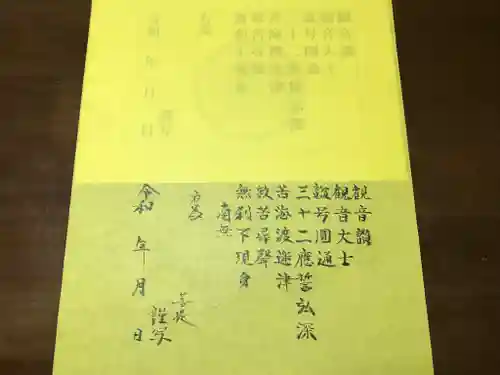 観音讃
観音大士
誕号圓通
三十二應誓弘深
苦海渡迷津
救苦尋聲
無刹不現身
南無
為
菩提
令和 年 月 日
謹写